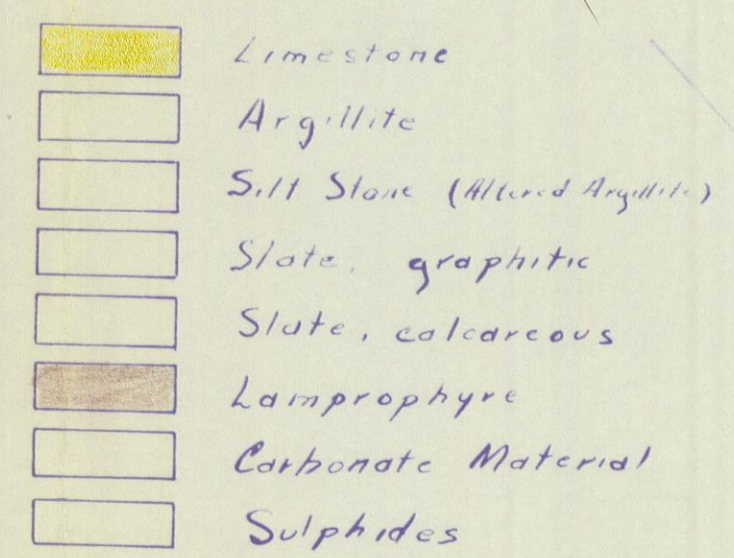 Limestone
Argillite
Silt Stone (Altered Argillite)
Slate, graphitic
Slate, calcareous
Lamprophyre
Carbonate Material
Sulphides